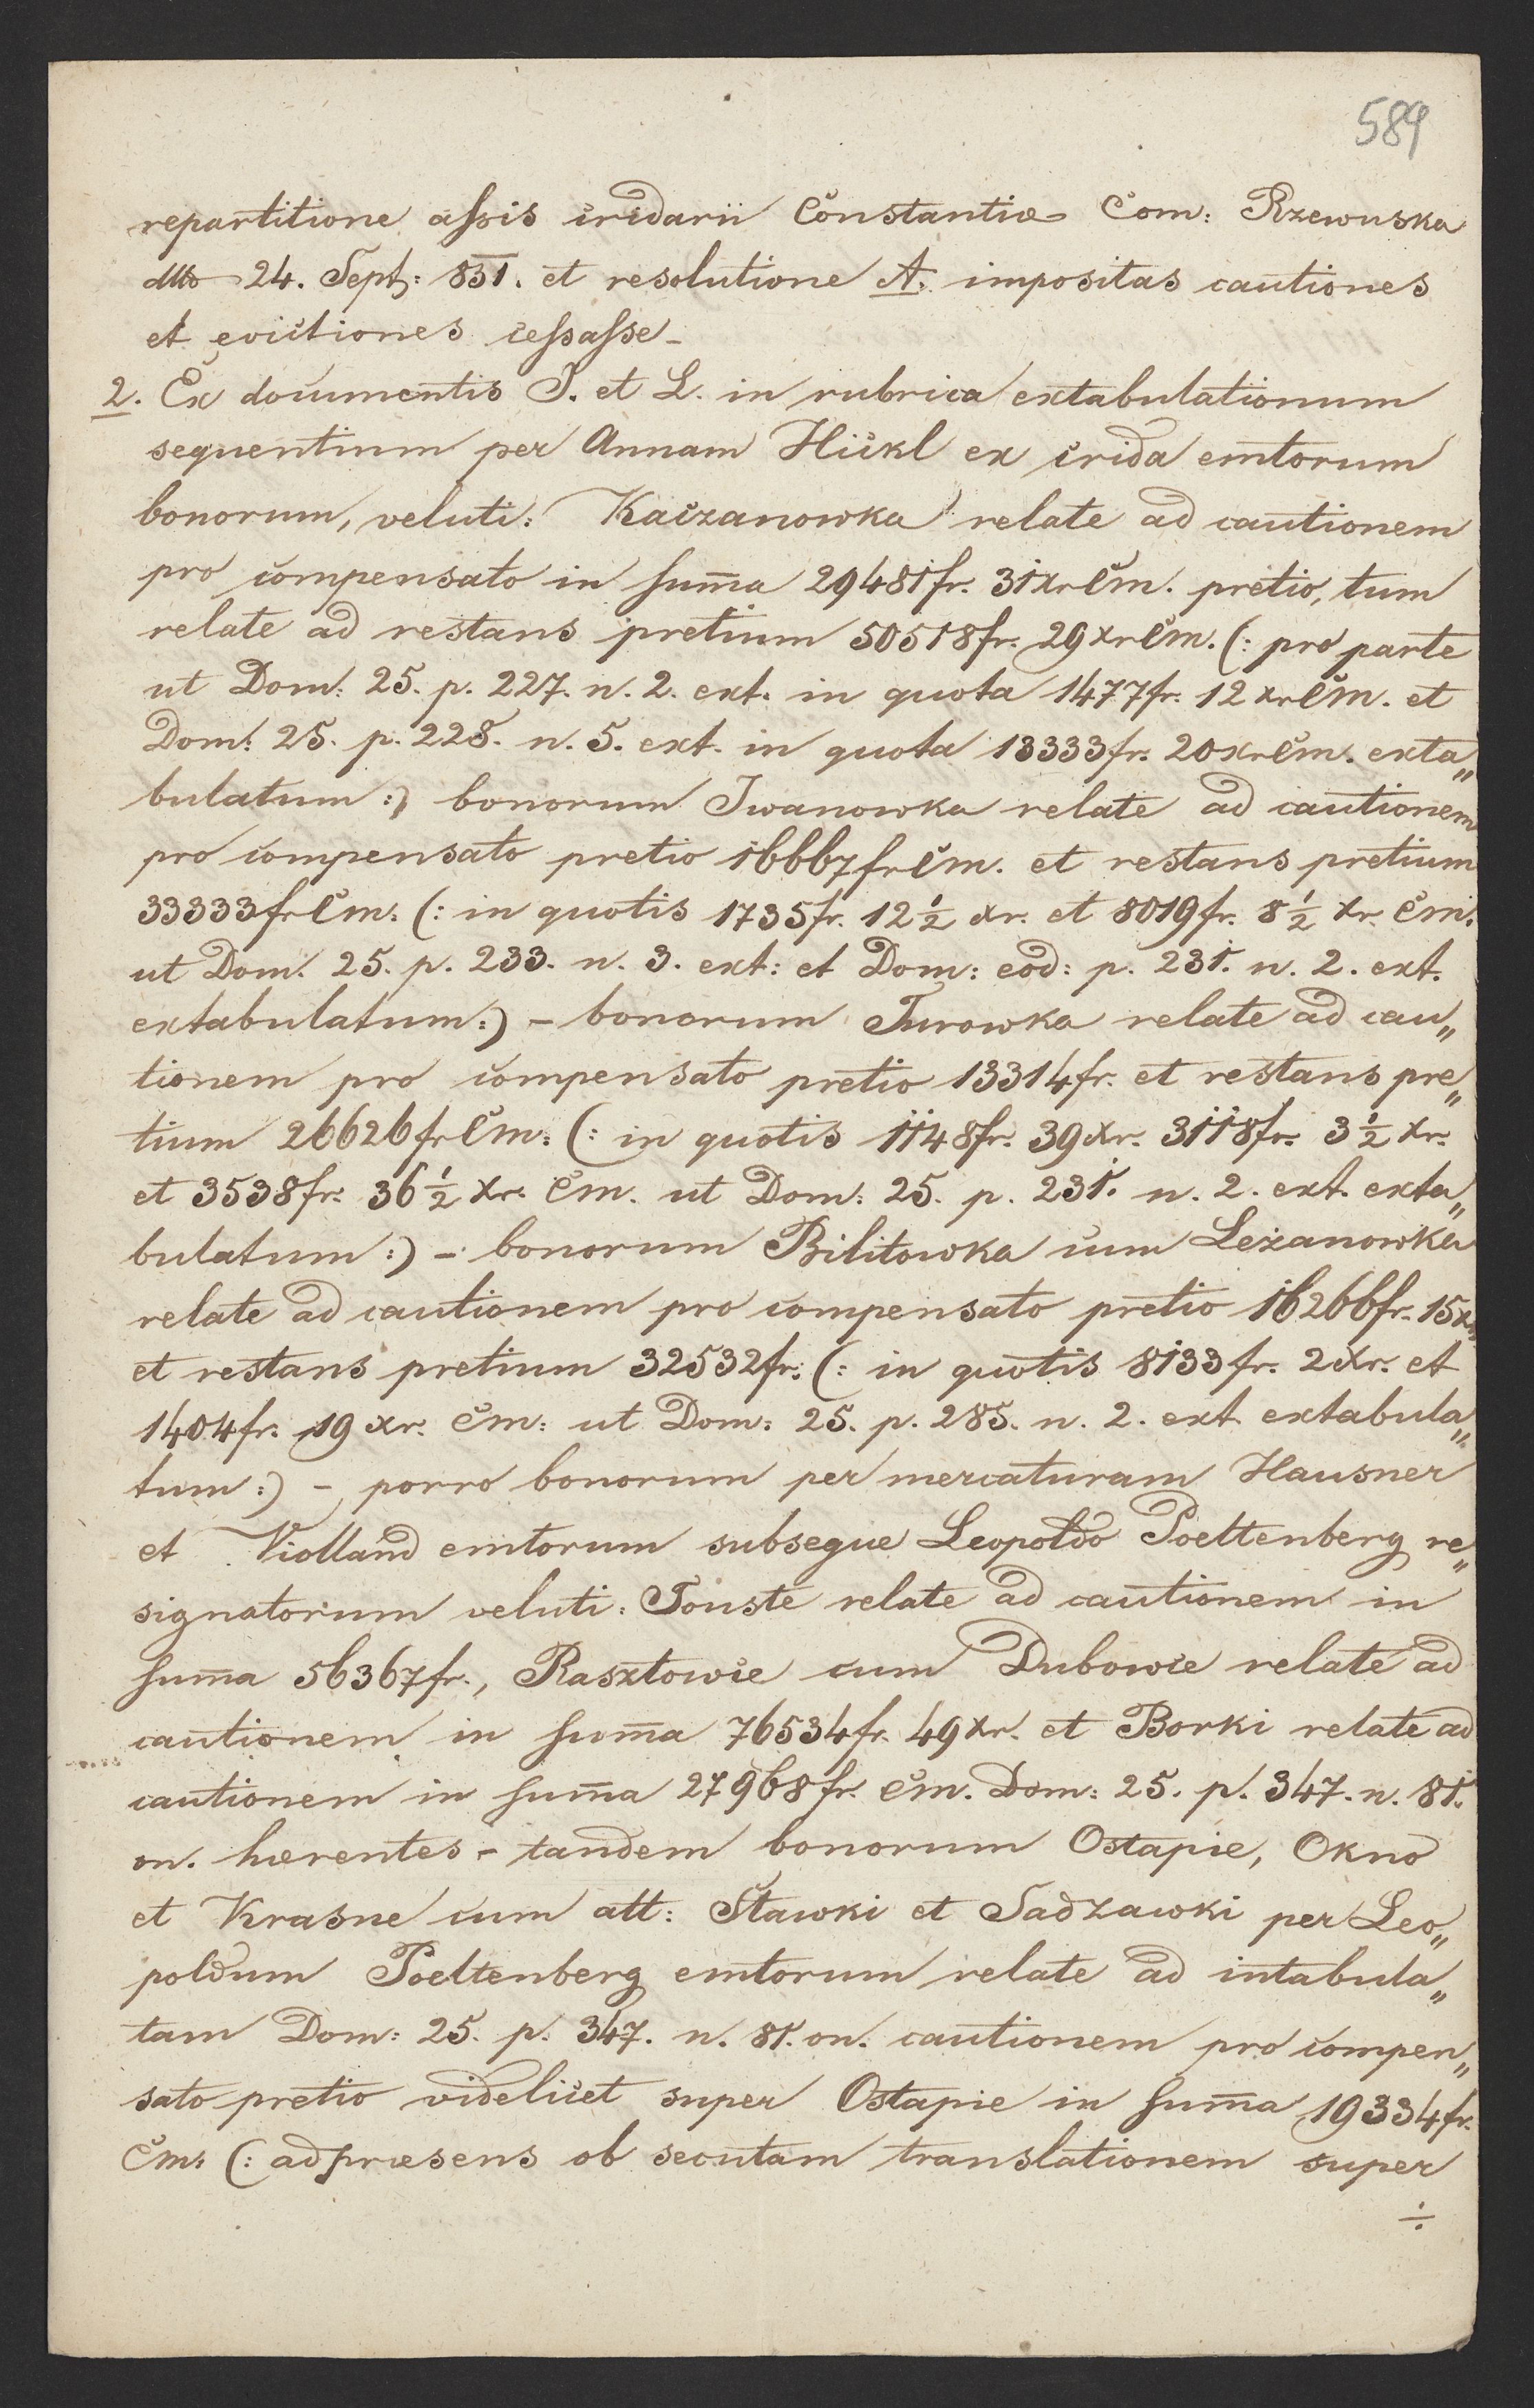 589
repartitione assis cridarii Constantiæ Com: Rzewuska
dtto 24. Sept: 831. et resolutione A. impositas cautiones
et evictiones cessasse_
2. Ex documentis J. et L. in rubrica extabulationum
sequentium per Annam Hickl ex crida emtorum
bonorum, veluti: Kaczanowka relate ad cautionem
pro compensato in summa 29481 fr. 31 xr Cm. pretio, tum
relate ad restans pretium 50518 fr. 29 xr Cm. (: pro parte
ut Dom: 25. p. 227. n. 2. ext. in quota 1477 fr. 12 xr Cm. et
Dom: 25. p. 228. n. 5. ext. in quota 13333 fr. 20 xr Cm. exta„
bulatum :) bonorum Iwanowka relate ad cautionem
pro compensato pretio 16667 fr Cm. et restans pretium
33333 fr Cm. (: in quotis 1735 fr. 12 ½ xr. et 8019 fr. 8 ½ xr. Cm.
ut Dom. 25. p. 233. n. 3. ext: et Dom: eod: p. 231. n. 2. ext.
extabulatum :) – bonorum Turowka relate ad cau„
tionem pro compensato pretio 13314 fr. et restans pre„
tium 26626 fr Cm. (: in quotis 1148 fr. 39 xr. 3118 fr. 3 ½ xr.
et 3538 fr. 36 ½ xr. Cm. ut Dom: 25. p. 231. n. 2. ext. exta„
bulatum :) – bonorum Bilitowka cum Leżanowka
relate ad cautionem pro compensato pretio 16266 fr. 15 xr
et restans pretium 32532 fr. (: in quotis 8133 fr. 2 xr. et
1404 fr. 19 xr. Cm: ut Dom: 25. p. 285. n. 2. ext. extabula„
tum :) – porro bonorum per mercaturam Hausner
et Violland emtorum subseque Leopoldo Poeltenberg re„
signatorum veluti: Touste relate ad cautionem in
summa 56367 fr., Rasztowce cum Dubowce relate ad
cautionem in summa 76534 fr. 49 xr. et Borki relate ad
cautionem in summa 27968 fr. Cm. Dom: 25. p. 347. n. 81.
on. hærentes – tandem bonorum Ostapie, Okno
et Krasne cum att: Stawki et Sadzawki per Leo„
poldum Poeltenberg emtorum relate ad intabula„
tam Dom: 25. p. 347. n. 81. on. cautionem pro compen„
sato pretio videlicet super Ostapie in summa 19334 fr.
Cm: (: ad præsens ob secutam translationem super
÷